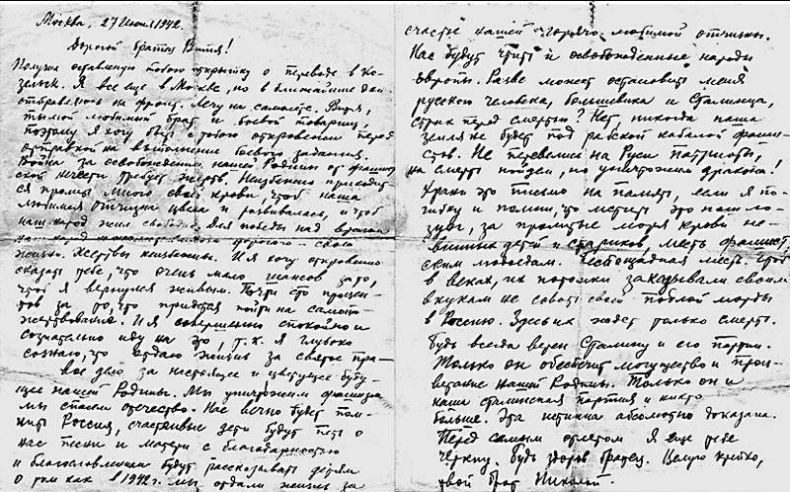 Москва, 27 июля 1942.
Дорогой братец Витя!
Получил оставленную тобою открытку о переводе в Ко-
зельск. Я все еще в Москве, но в ближайшие дни
отправляюсь на фронт. Лечу на самолете. Витя,
ты мой любимый брат и боевой товарищ,
поэтому я хочу быть с тобою откровенен перед
отправкой на выполнение боевого задания.
Война за освобождение нашей Родины от фашист
ской нечисти требует жертв. Неизбежно приходит
ся пролить много своей крови, чтоб наша
любимая отчизна цвела и развивалась, и чтоб
наш народ жил свободно. Для победы над врагом
наш народ не жалеет самого дорогого – своей
жизни. Жертвы неизбежны. И я хочу откровенно
сказать тебе, что очень мало шансов за то,
чтоб я вернулся живым. Почти сто процен-
тов за то, что придется пойти на самопо-
жертвование. И я совершенно спокойно и
сознательно иду на это, т.к. я глубоко
сознаю, что отдаю жизнь за святое пра-
вое дело за настоящее и цветущее буду-
щее нашей Родины. Мы уничтожим фашизм
мы спасем отечество. Нас вечно будет пом-
нить Россия, счастливые дети будут петь о
нас песни и матери с благодарностью
и благословением будут рассказывать детям
о том как в 1942 г. мы отдали жизнь за
счастье нашей горячо любимой отчизны.
Нас будут чтить и освобожденные народы
Европы. Разве может остановить меня
русского человека, большевика и сталинца,
страх перед смертью? Нет, никогда наша
земля не будет под рабской кабалой фаши-
стов. Не перевелись на Руси патриоты,
на смерть пойдем, но уничтожим дракона!
Храни это письмо на память, если я по-
гибну и помни, что мстить это наш ло-
зунг, за пролитые моря крови не-
винных детей и стариков, месть фашист
ским людоедам. Беспощадная месть. Чтоб
в веках, их потомки заказывали своим
внукам не совать своей подлой морды
в Россию. Здесь их ждет только смерть.
Будь всегда верен Сталину и его партии.
Только он обеспечит могущество и проц-
ветание нашей Родины. Только он и
наша сталинская партия и никто
больше. Эта истина абсолютно доказана.
Перед самым отлетом я еще тебе
черкну. Будь здоров братец. Целую крепко,
твой брат Николай